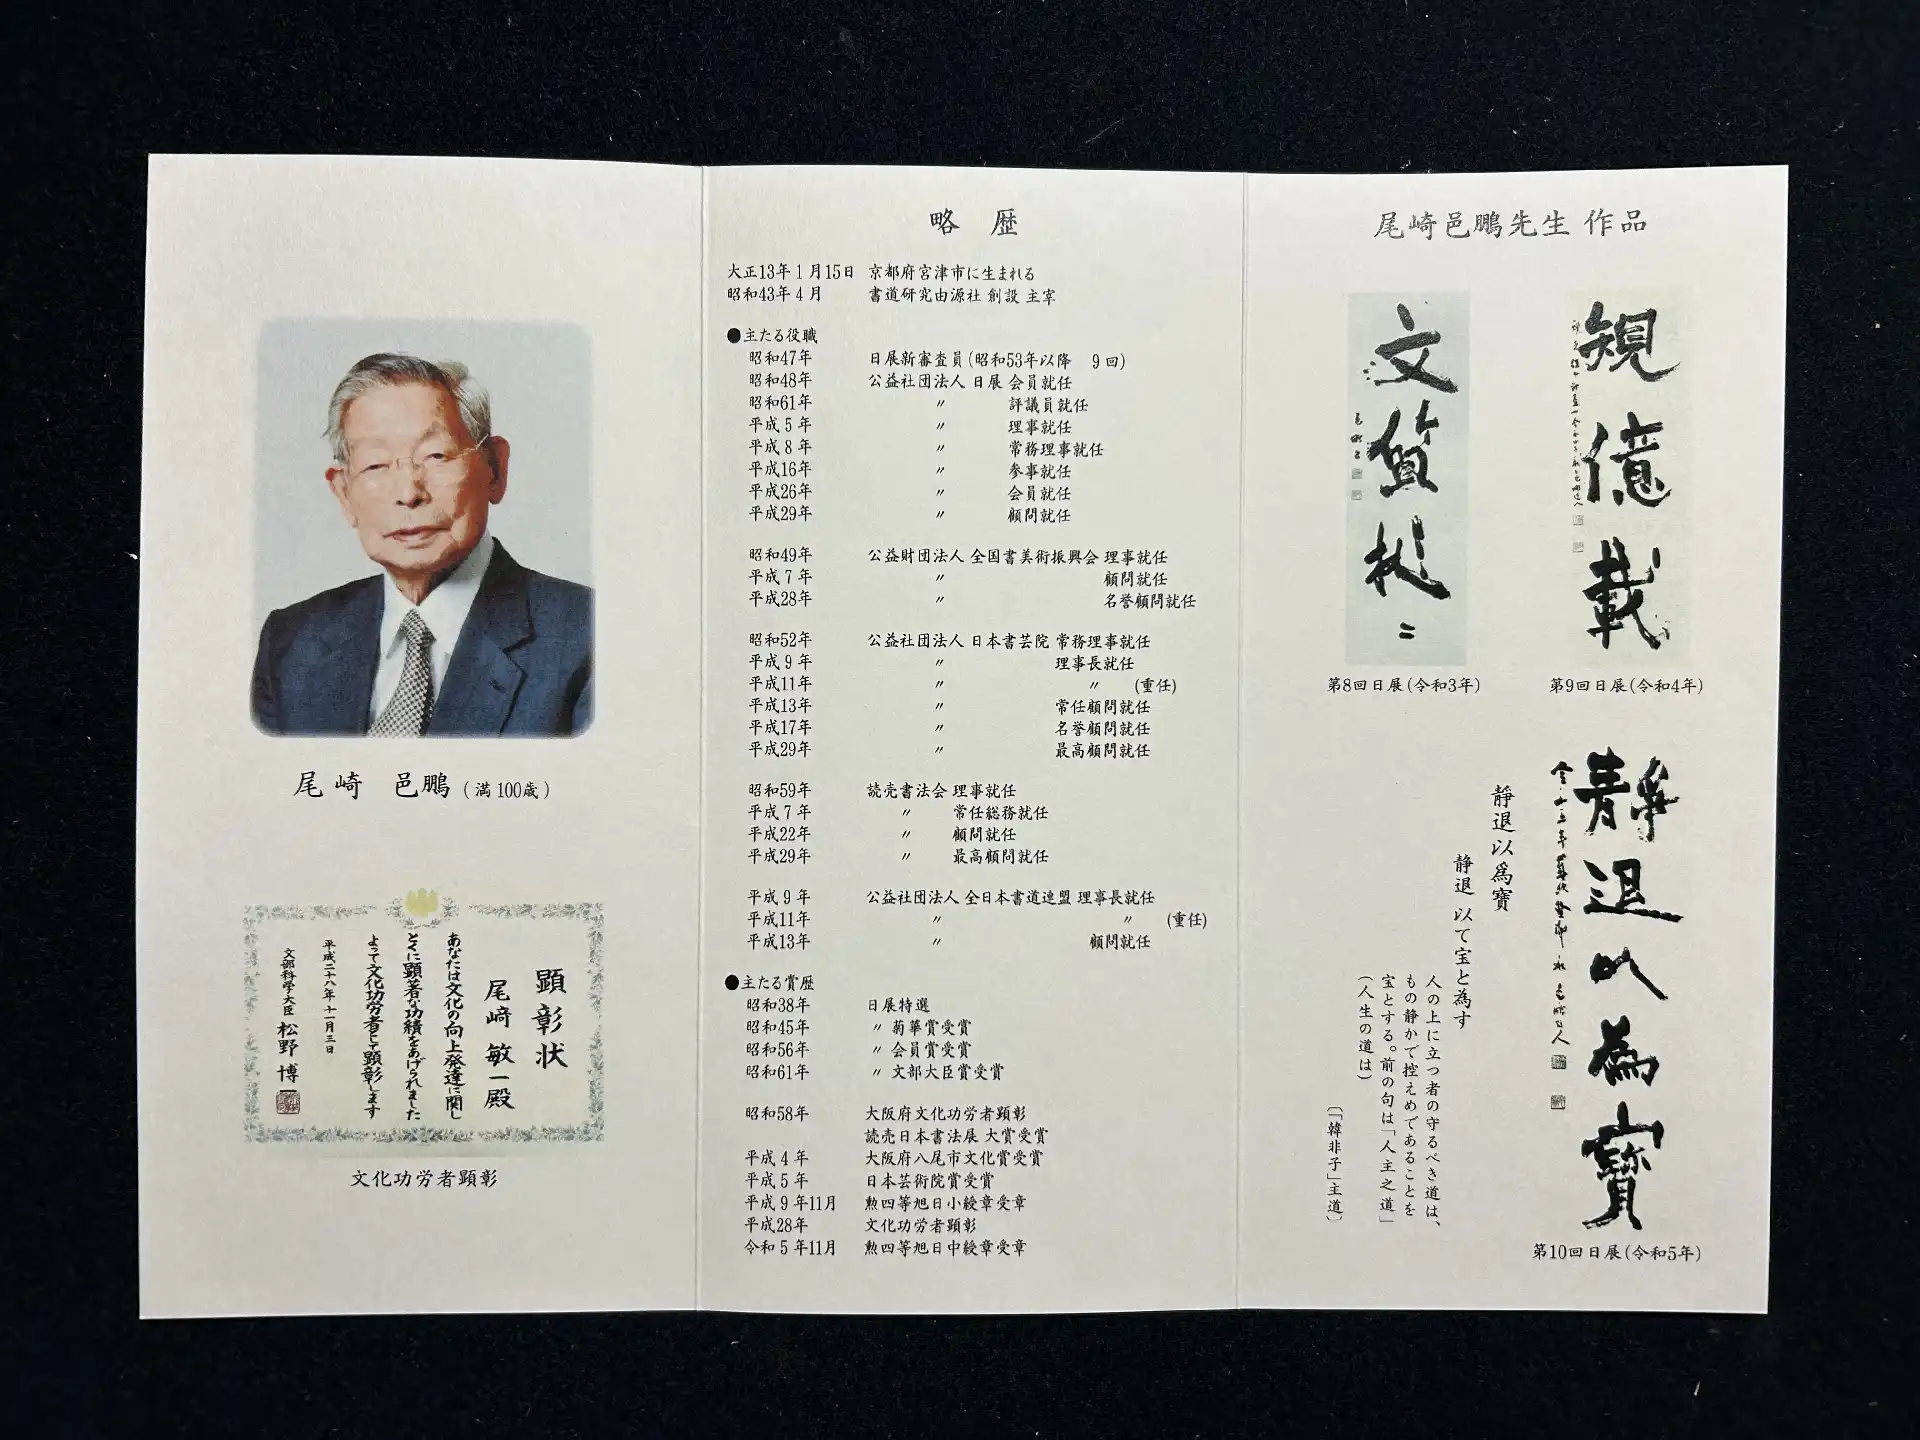 尾崎 邑鵬（満100歳）
顕彰状
尾﨑敏一殿
あなたは文化の向上発達に関し
とくに顕著な功績をあげられました
よって文化功労者として顕彰します
平成二十八年十一月三日
文部科学大臣 松野博一
文化功労者顕彰
略 歴
大正13年1月15日 京都府宮津市に生まれる
昭和43年4月 書道研究由源社 創設 主宰
●主たる役職
昭和47年 日展新審査員(昭和53年以降 9回)
昭和48年 公益社団法人 日展 会員就任
昭和61年 〃 評議員就任
平成5年 〃 理事就任
平成8年 〃 常務理事就任
平成16年 〃 参事就任
平成26年 〃 会員就任
平成29年 〃 顧問就任
昭和49年 公益財団法人 全国書美術振興会 理事就任
平成7年 〃 顧問就任
平成28年 〃 名誉顧問就任
昭和52年 公益社団法人 日本書芸院 常務理事就任
平成9年 〃 理事長就任
平成11年 〃 〃 (重任)
平成13年 〃 常任顧問就任
平成17年 〃 名誉顧問就任
平成29年 〃 最高顧問就任
昭和59年 読売書法会 理事就任
平成7年 〃 常任総務就任
平成22年 〃 顧問就任
平成29年 〃 最高顧問就任
平成9年 公益社団法人 全日本書道連盟 理事長就任
平成11年 〃 〃 (重任)
平成13年 〃 顧問就任
●主たる賞歴
昭和38年 日展特選
昭和45年 〃 菊華賞受賞
昭和56年 〃 会員賞受賞
昭和61年 〃 文部大臣賞受賞
昭和58年 大阪府文化功労者顕彰
読売日本書法展 大賞受賞
平成4年 大阪府八尾市文化賞受賞
平成5年 日本芸術院賞受賞
平成9年11月 勲四等旭日小綬章受章
平成28年 文化功労者顕彰
令和5年11月 勲四等旭日中綬章受章
尾崎邑鵬先生 作品
文質彬〻
第8回日展(令和3年)
規億載
第9回日展(令和4年)
靜退以為寶
第10回日展(令和5年)
靜退以爲寶
静退 以て宝と為す
人の上に立つ者の守るべき道は、
もの静かで控えめであることを
宝とする。前の句は「人主之道」
(人生の道は)
〔「韓非子」主道〕